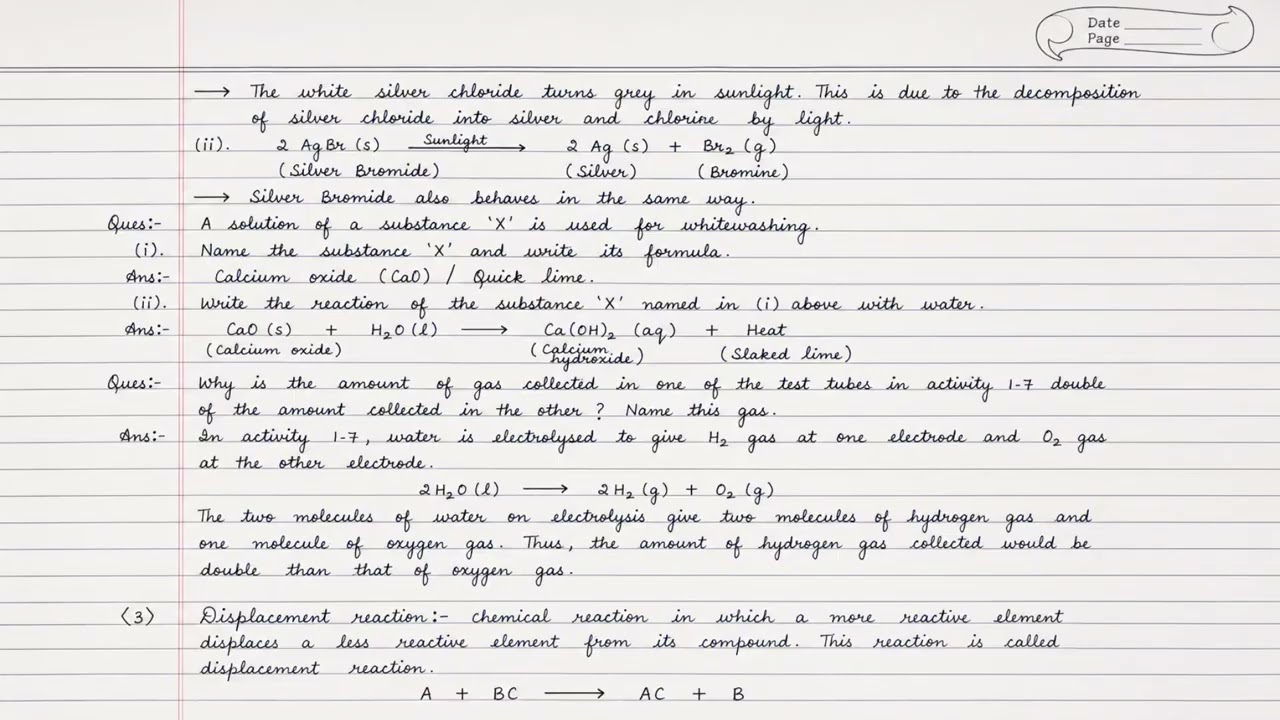 Date
Page
⟶ The white silver chloride turns grey in sunlight. This is due to the decomposition
of silver chloride into silver and chlorine by light.
(ii). 2 AgBr (s) Sunlight⟶ 2 Ag (s) + Br₂ (g)
(Silver Bromide) (Silver) (Bromine)
⟶ Silver Bromide also behaves in the same way.
Ques:- A solution of a substance 'X' is used for whitewashing.
(i). Name the substance 'X' and write its formula.
Ans:- Calcium oxide (CaO) / Quick lime.
(ii). Write the reaction of the substance 'X' named in (i) above with water.
Ans:- CaO (s) + H₂O (l) ⟶ Ca(OH)₂ (aq) + Heat
(Calcium oxide) (Calcium hydroxide) (Slaked lime)
Ques:- Why is the amount of gas collected in one of the test tubes in activity 1-7 double
of the amount collected in the other ? Name this gas.
Ans:- In activity 1-7, water is electrolysed to give H₂ gas at one electrode and O₂ gas
at the other electrode.
2H₂O (l) ⟶ 2H₂ (g) + O₂ (g)
The two molecules of water on electrolysis give two molecules of hydrogen gas and
one molecule of oxygen gas. Thus, the amount of hydrogen gas collected would be
double than that of oxygen gas.
⟨3⟩ Displacement reaction:- chemical reaction in which a more reactive element
displaces a less reactive element from its compound. This reaction is called
displacement reaction.
A + BC ⟶ AC + B